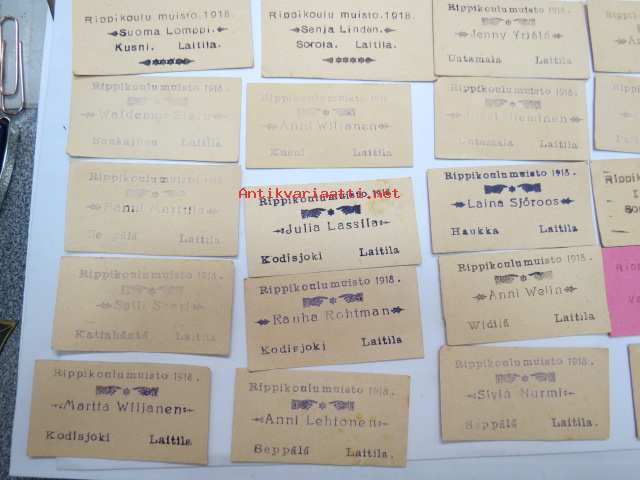 Rippikoulu muisto. 1918.
Suoma Lomppi.
Kusni. Laitila.
Rippikoulu muisto. 1918.
Senja Linden.
Soroja. Laitila.
Rippikoulumuisto 1918.
Jenny Yrjälä
Untamala Laitila
Rippikoulumuisto 1918.
Laitila
Rippikoulumuisto 191
Anni Wiljanen
Kusni Laitila
Rippikoulumuisto 1918.
Untamala Laitila
Rippikoulumuisto 1918.
Laitila
Antikvariaatti.net
Rippikoulumuisto 1918.
Julia Lassila
Kodisjoki Laitila
Rippikoulumuisto 1918.
Laina Sjöroos
Haukka Laitila
Rippikoulumuisto 1918.
Laitila
Rippikoulumuisto 1918.
Rauha Rohtman
Kodisjoki Laitila
Rippikoulumuisto 1918.
Anni Welin
Widilä Laitila
Rippikoulumuisto 1918.
Martta Wiljanen
Kodisjoki Laitila.
Rippikoulumuisto 1918.
Anni Lehtonen
Seppälä Laitila.
Rippikoulumuisto 1918.
Siviä Nurmi
Seppälä Laitila.